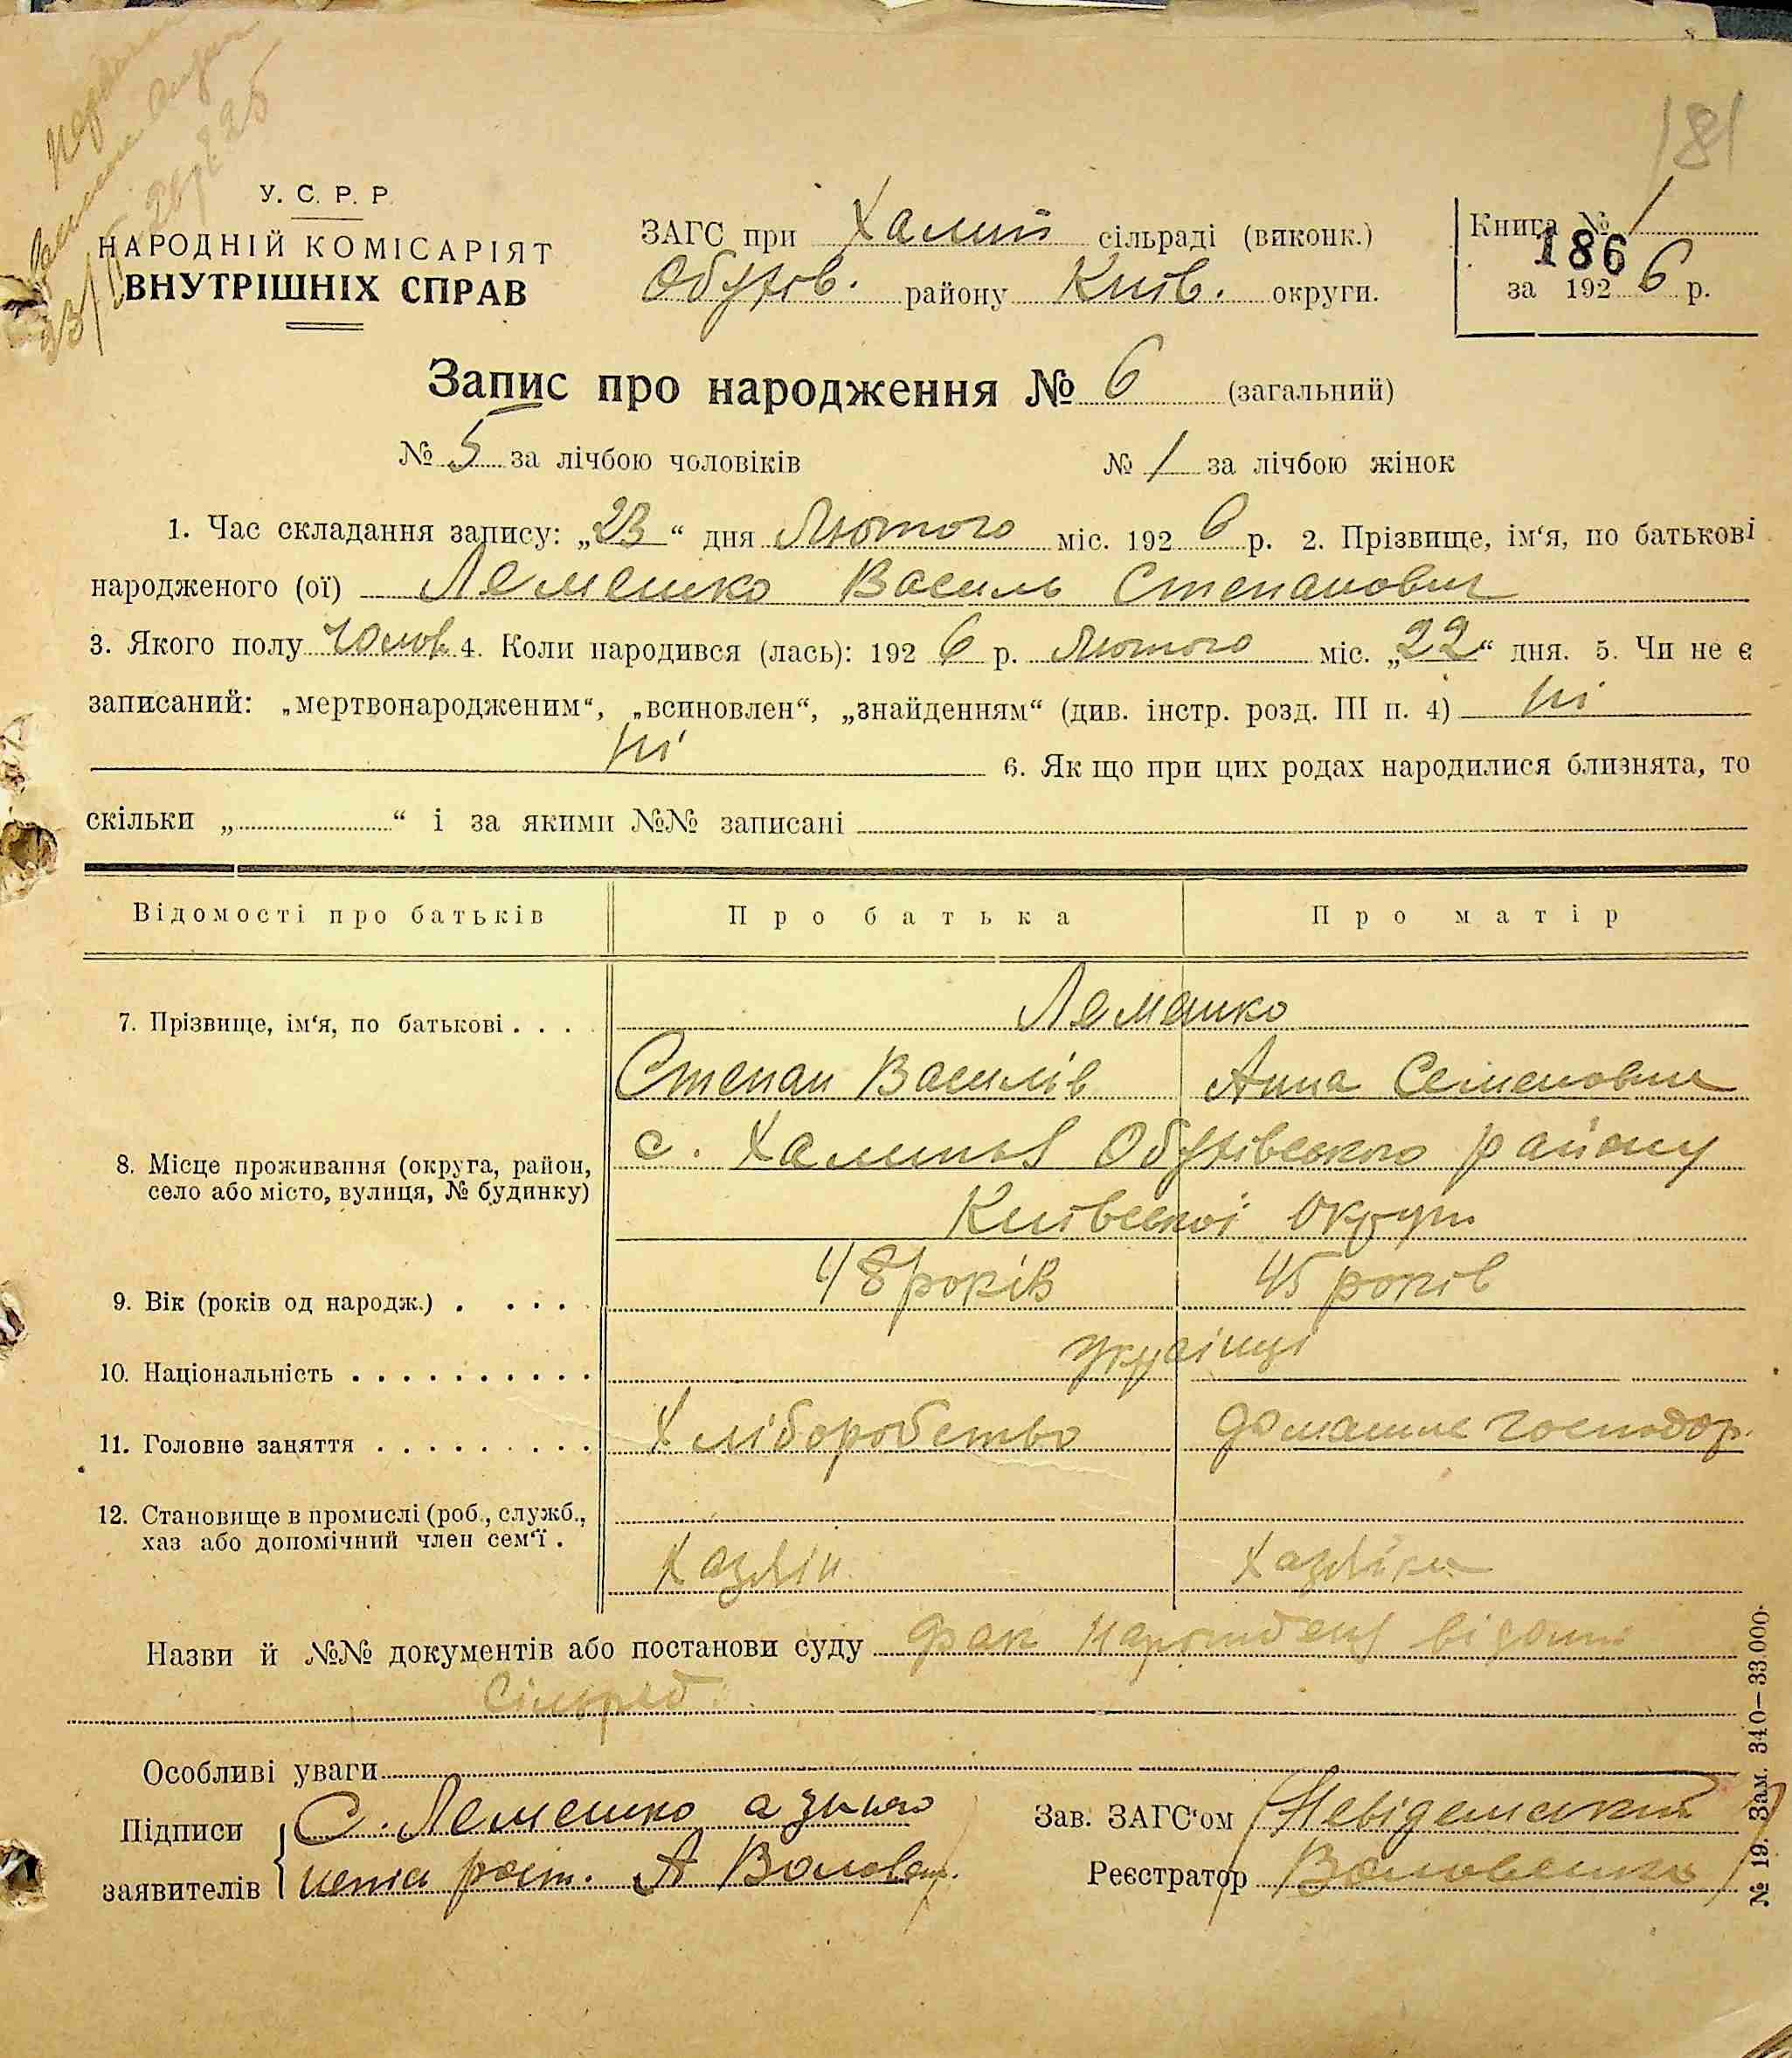 181
У. С. Р. Р.
НАРОДНІЙ КОМІСАРІЯТ
ВНУТРІШНІХ СПРАВ
ЗАГС при Халип сільраді (виконк.)
Обухів. району Київ. округи.
Книга № 1
186
за 1926 р.
Запис про народження № 6 (загальний)
№ 5 за лічбою чоловіків № 1 за лічбою жінок
1. Час складання запису: „23“ дня Лютого міс. 1926 р. 2. Прізвище, ім‘я, по батькові
народженого (ої) Лемешко Василь Степанович
3. Якого полу Чолов. 4. Коли народився (лась): 1926 р. Лютого міс. „22“ дня. 5. Чи не є
записаний: „мертвонародженим“, „всиновлен“, „знайденням“ (див. інстр. розд. III п. 4) ні
ні 6. Як що при цих родах народилися близнята, то
скільки „ “ і за якими №№ записані
Відомості про батьків Про батька Про матір
7. Прізвище, ім‘я, по батькові . . . . Лемешко
Степан Василів Анна Семеновна
8. Місце проживання (округа, район,
село або місто, вулиця, № будинку)
с. Халипья Обухівського району
Київської Округи
9. Вік (років од народж.) . . . . . 48 років 45 років
10. Національність . . . . . . . . . . українці
11. Головне заняття . . . . . . . . . Хліборобство домашнє господар.
12. Становище в промислі (роб., служб.,
хаз або допомічний член сем‘ї .
Хазяїн Хазяйка
Назви й №№ документів або постанови суду
Сільрад.
Особливі уваги
Підписи
заявителів
С. Лемешко а за його
непис розп. А Воловен.
Зав. ЗАГС‘ом
Реєстратор Воловенко
№ 19. Зам. 340—33.000·